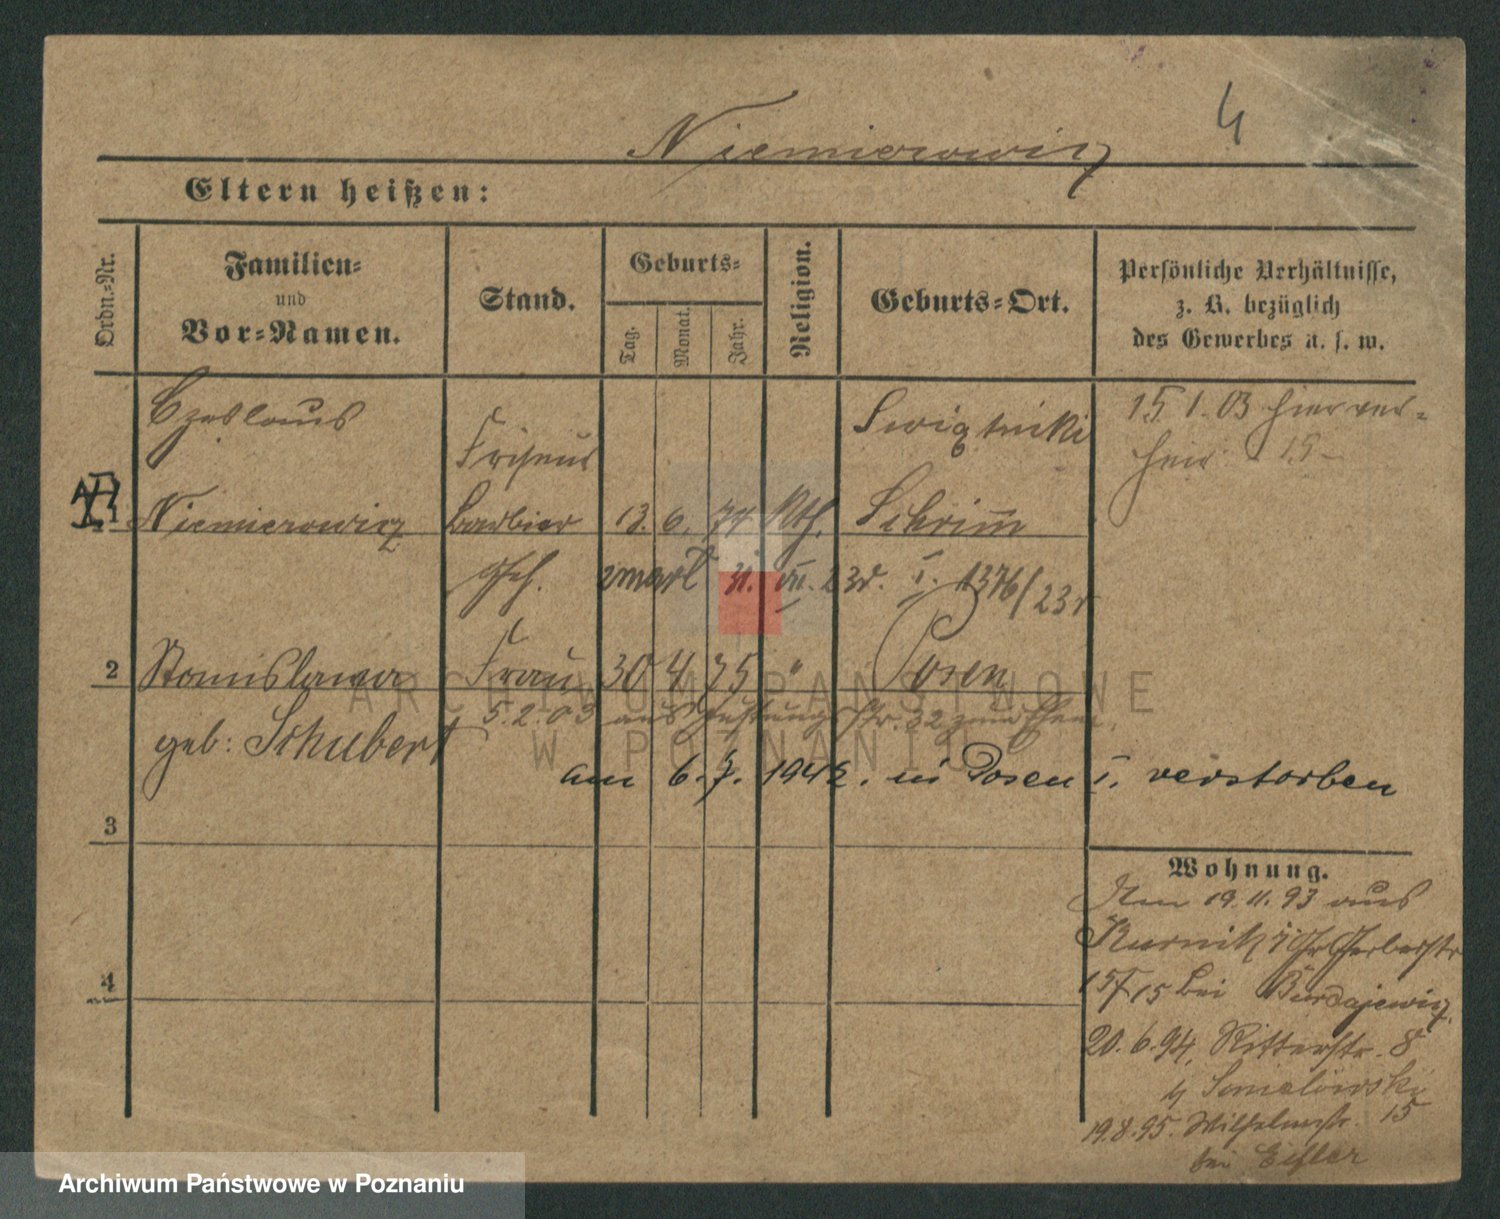 Niemierowicz 4
Eltern heißen:
Ordn.-Nr.
Familien-
und
Vor-Namen.
Stand.
Geburts-
Tag.
Monat.
Jahr.
Religion.
Geburts-Ort.
Persönliche Verhältnisse,
z. B. bezüglich
des Gewerbes u. s. w.
Czeslaus
Friseur
Swiątniki
15 1. 03 hier ver-
Niemierowicz Barbier 13. 6. 74 Kth. Schrimm
Geh.
2 Stanislawa Frau 30 4 75 " Posen
geb: Schubert
5. 2. 03 aus 32 zum Ehem.
am 6. 7. 1942. in Posen verstorben
3
4
Wohnung.
Am 19. 11. 93 aus
Kurnik Gr Gerberstr
15 bei Burdajewicz
20. 6. 94, Ritterstr. 8
19.8.95. Wilhelmstr. 15
bei Eifler
ARCHIWUM PAŃSTWOWE
W POZNANIU
Archiwum Państwowe w Poznaniu